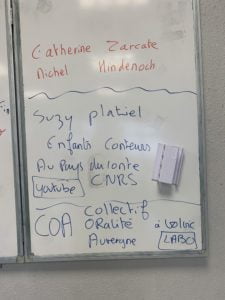 Catherine Zarcate
Michel Hindenoch
Suzy platiel
Enfants Conteurs
Au Pays du conte
Youtube CNRS
COA Collectif
ORalité à Volvic
Auvergne LABO